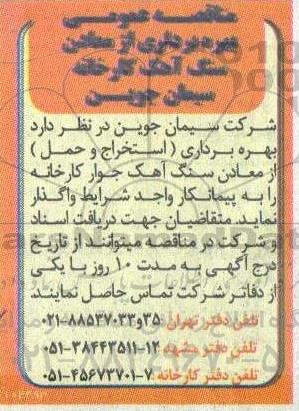 مناقصه عمومی
بهره برداری از معادن
سنگ آهک کارخانه
سیمان جوین
شرکت سیمان جوین در نظر دارد
بهره برداری ( استخراج و حمل )
از معادن سنگ آهک جوار کارخانه
را به پیمانکار واجد شرایط واگذار
نماید. متقاضیان جهت دریافت اسناد
و شرکت در مناقصه میتوانند از تاریخ
درج آگهی به مدت ۱۰ روز با یکی
از دفاتر شرکت تماس حاصل نمایند
تلفن دفتر تهران ۳۵و۸۸۵۳۷۰۳۳-۰۲۱
تلفن دفتر مشهد ۱۲-۳۸۴۴۳۵۱۱-۰۵۱
تلفن دفتر کارخانه ۷-۴۵۶۷۳۷۰۱-۰۵۱